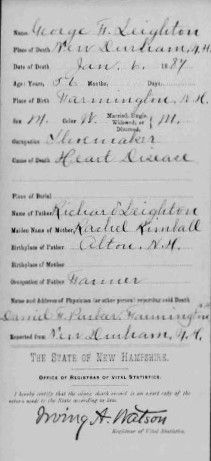 Name, George F. Leighton
Place of Death New Durham, N.H.
Date of Death Jan. 6, 1887
Age: Years, 52 Months, Days,
Place of Birth Farmington, N.H.
Sex M. Color W. Married, Single, Widowed, or Divorced, } M.
Occupation Shoemaker
Cause of Death Heart Disease
Place of Burial
Name of Father Richard Leighton
Maiden Name of Mother Rachel Kimball
Birthplace of Father Alton, N.H.
Birthplace of Mother
Occupation of Father Farmer
Name and Address of Physician (or other person) reporting said Death
Daniel F. Parker, Farmington, N.H.
Reported from New Durham, N.H.
THE STATE OF NEW HAMPSHIRE.
OFFICE OF REGISTRAR OF VITAL STATISTICS.
I hereby certify that the above death record is an exact copy of the
return made to the State according to law.
Irving A. Watson
Registrar of Vital Statistics.